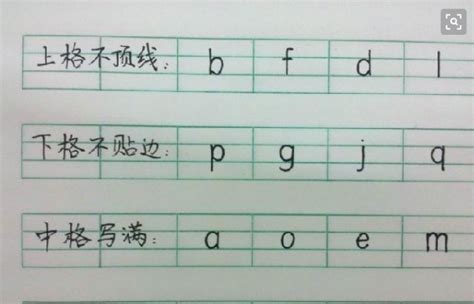 上格不顶线: b f d l
下格不贴边: p g j q
中格写满: a o e m